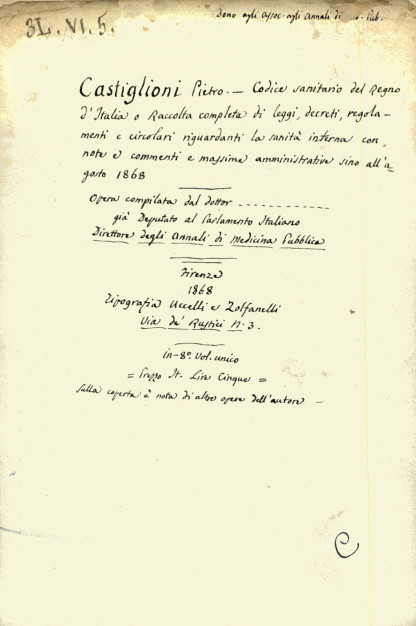 3L. VI. 5.
dono agli assoc. agli Annali di Pub.
Castiglioni Pietro. — Codice sanitario del Regno
d'Italia o Raccolta completa di leggi, decreti, regola-
menti e circolari riguardanti la sanità interna con,
note e commenti e massime amministrative sino all'a-
gosto 1868
Opera compilata dal dottor - - - - - - - - - - -
già Deputato al Parlamento Italiano
Direttore degli Annali di Medicina Pubblica
Firenze
1868
Tipografia Uccelli e Zolfanelli
Via de' Rustici N. 3.
in-8.º Vol. unico
= Prezzo It. Lire Cinque =
Sulla coperta è nota di altre opere dell'autore —
C